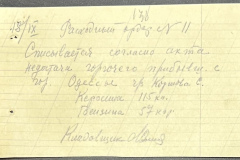 136
Расходный ордер № 11
Списывается согласно акта
недостача горючего прибывш. с
гор. Одессы гр.
Керосина 115 кг.
Бензина 57 кгр.
Кладовщик